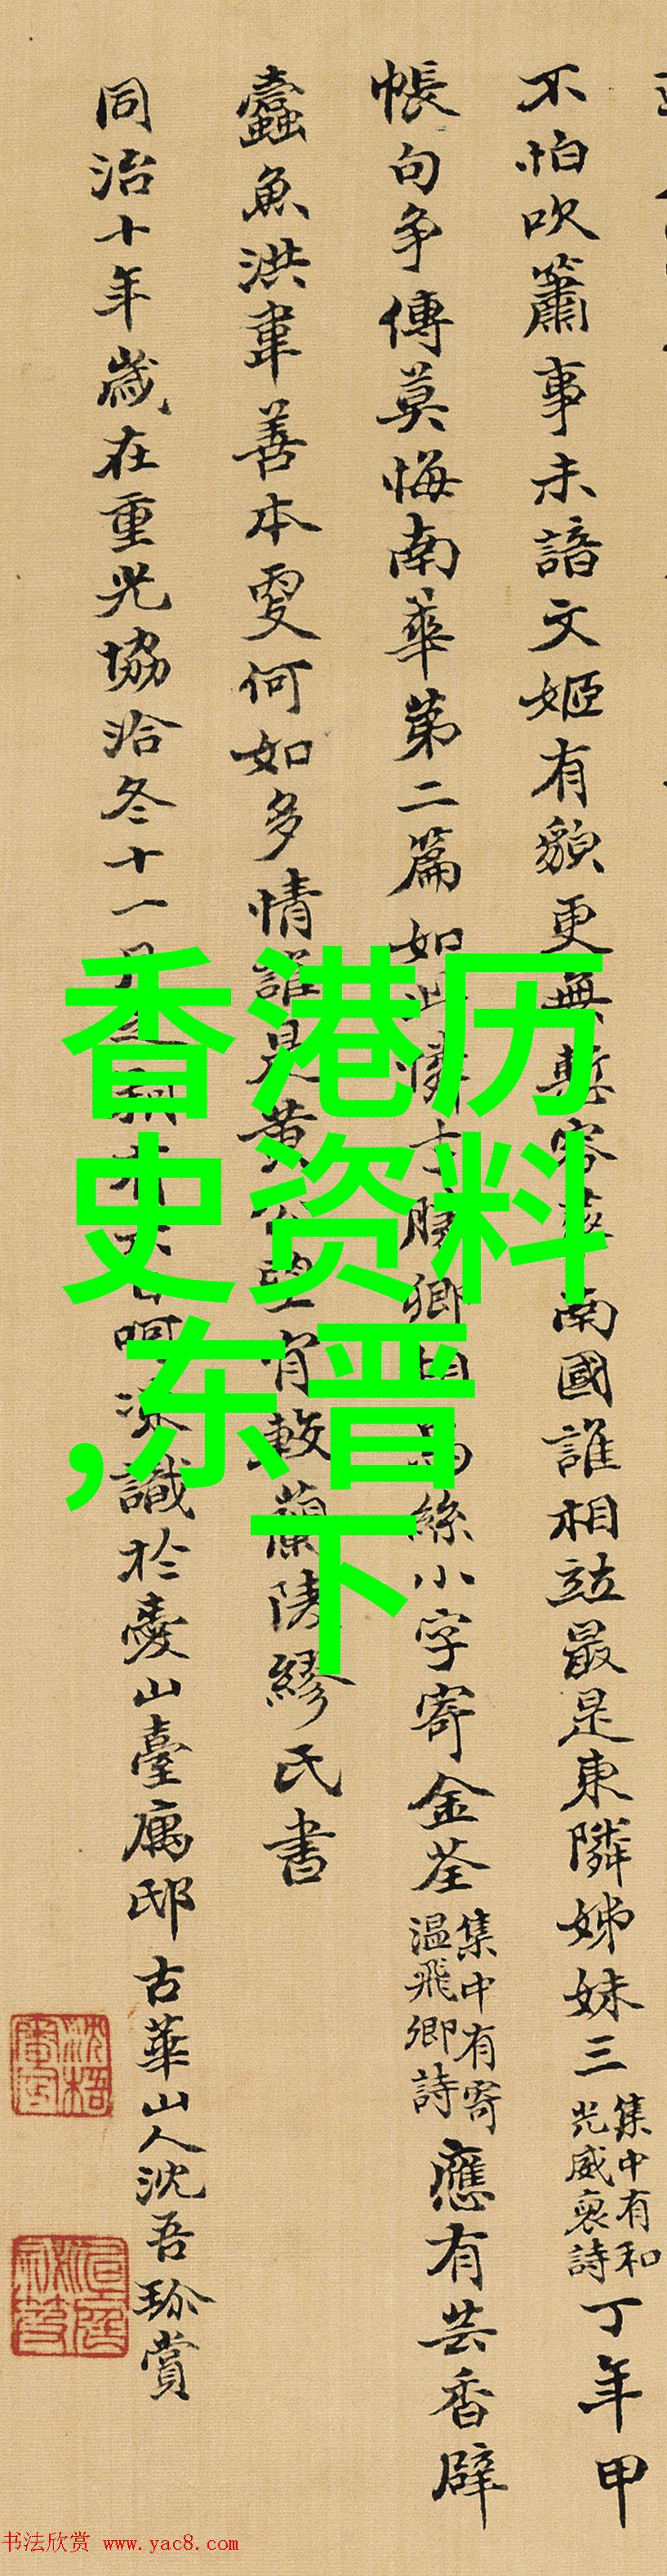 不怕吹簫事未諳文姬有貌更無 南國誰相竝最是東隣姊妹三集中有和光威裒詩丁年甲
帳句争傳莫悔南華第二篇如 卿 絲小字寄金荃集中有寄温飛卿詩應有芸香辟
蠹魚洪韋善本更何如多情誰是黄 蘭陵繆氏書
同治十年歲在重光協洽冬十一 識於 山臺寓邸古華山人沈吾 賞
香港历
史资料
,东晋
下
书法欣赏 www.yac8.com